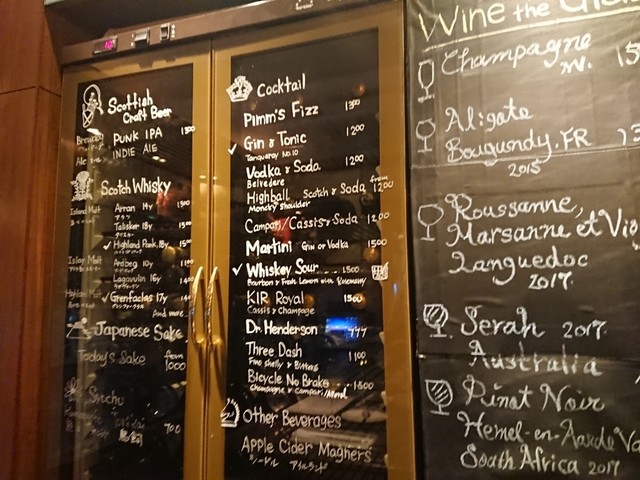 Scottish
Craft Beer
PUNK IPA 1300
INDIE ALE
Scotch Whisky
Island Malt Arran 14y 1500
アラン
Talisker 18y
タリスカー
✓ Highland Park, 18y
Islay Malt Ardbeg 10y 1100
Lagavulin 16y
ラガヴーリン
✓ Glenfaclas 17y
グレンファークラス
And more
Japanese Sake
Today's Sake from
1000
700
Cocktail
Pimm's Fizz 1300
✓ Gin & Tonic 1200
Tanqueray No.10
Vodka & Soda 1200
Belvedere
Highball Scotch & Soda from 1200
Monkey Shoulder
Campari/Cassis & Soda 1200
Martini Gin or Vodka 1500
✓ Whiskey Sour 1500
Bourbon & Fresh Lemon with Rosemary
KIR Royal 1500
Cassis & Champage
Dr. Henderson 777
Three Dash 1100
Fino Shelly & Bitters
Bicycle No Brake 1500
Champagne & Campari/Almond
Other Beverages
Apple Cider Magners
シードル アイルランド
Wine the
Champagne
NV. 15
Aligate
Bougundy. FR
2015
Roussanne,
Marsanne et Vio
Languedoc
2017.
Serah 2017.
Australia
Pinot Noir
Hemel-en-Aarde Va
South Africa 2017